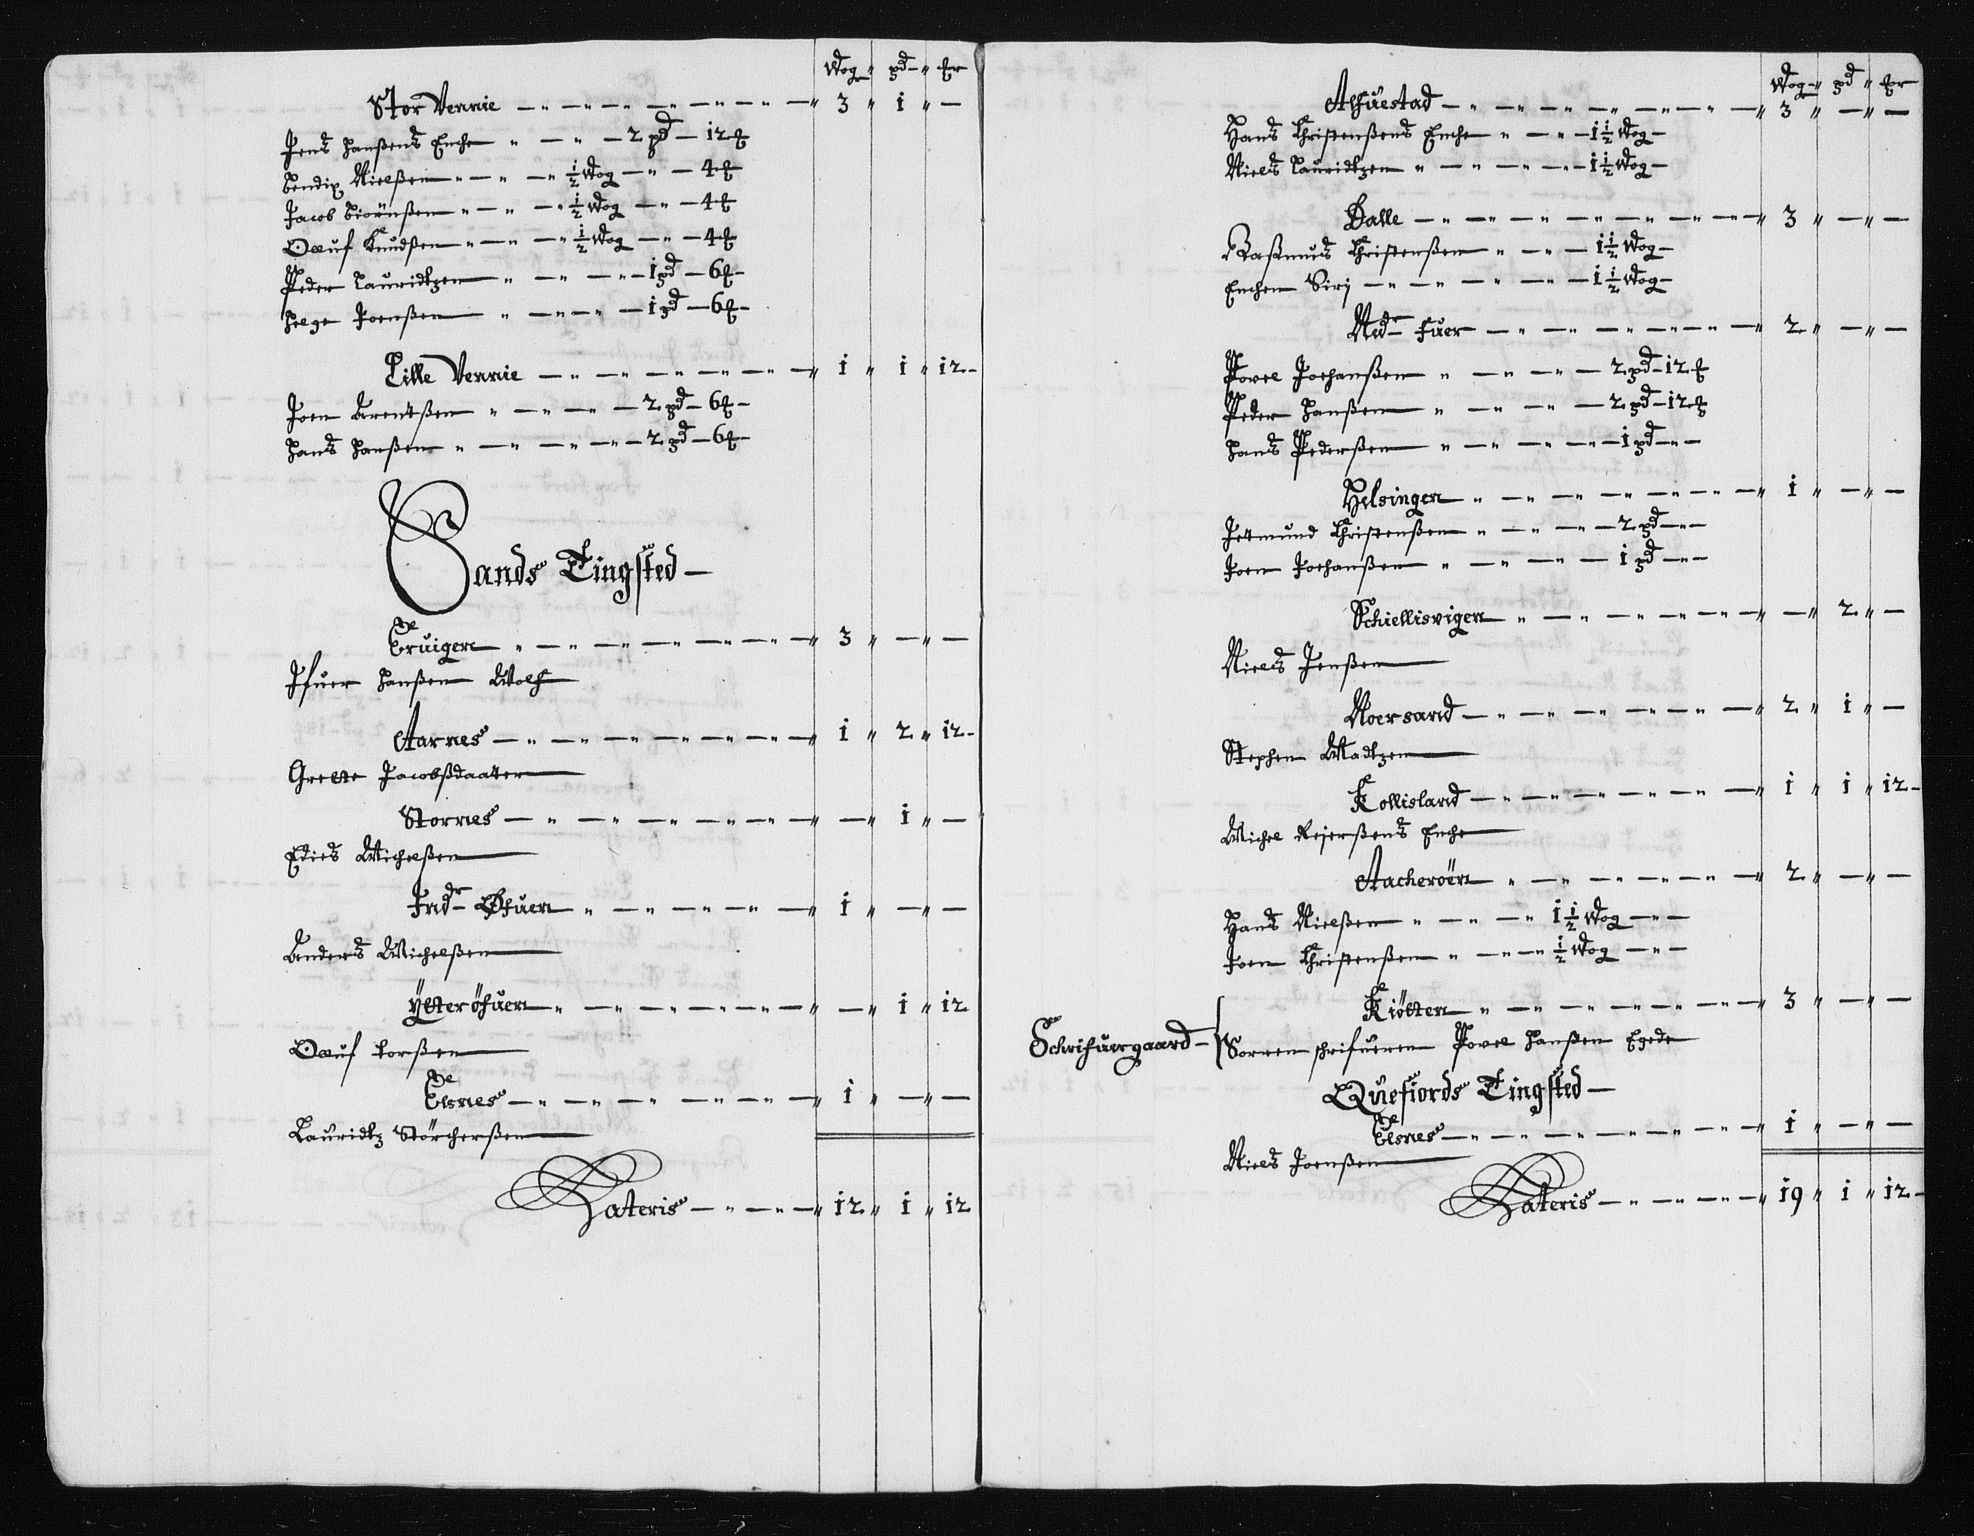 Wog " pd " Er
Stor Vennie — 3 " 1 " —
Jens Hanßens Encke " — " — 2 pd — 12 E
Bendix Nielßen " — " — ½ Wog — " — 4 E
Jacob Biörnßen " — " — ½ Wog — " — 4 E
Oluf Knudßen " — " — ½ Wog — " — 4 E
Peder Lauridtzen " — " — 1 pd — 6 E —
Helge Joenßen " — " — 1 pd — 6 E —
Lille Vennie — 1 " 1 " 12 —
Joen Arentßen " — " — 2 pd — 6 E —
Hans Hanßen " — " — 2 pd — 6 E —
Sands Tingsted —
Eruigen " — 3 " — " —
Ifuer Hanßen Wolf
Aarnes — 1 " 2 " 12 —
Grette Jacobßdaatter
Stornes — " — " 1 " —
Edies Michelßen
Indr Øfuen " — 1 " — " —
Anders Michelßen
Ÿtterøfuen " — " — " 1 " 12
Oluf Larßen
Elsnes — 1 " — " —
Lauridtz Störcherßen
Lateris — 12 " 1 " 12
Wog " pd " Er
Alfuestad — 3 " — " —
Hans Christenßens Encke " — " — 1½ Wog —
Niels Lauridtzen " — " — 1½ Wog —
Dalle — 3 " — " —
Raßmus Christenßen " — " — 1½ Wog —
Enchen Sirj — " — 1½ Wog —
Nedr Fuer — 2 " — " —
Povel Johanßen " — " — 2 pd — 12 E
Peder Hanßen " — " — 2 pd — 12 E
Hans Pederßen " — " — 1 pd — " —
Helsingen " — 1 " — " —
Jetmund Christenßen " — " — 2 pd — " —
Joen Johanßen " — " — 1 pd — " —
Schiellisvigen " — " — " 2 " —
Niels Jenßen
Noersand — 2 " 1 " —
Stephen Madtzen
Kollisland — 1 " 1 " 12 —
Michel Rejerßens Encke
Aacheröen " — 2 " — " —
Hans Nielßen " — " — 1½ Wog — " —
Joen Christenßen " — " — ½ Wog — " —
Kiötten " — 3 " — " —
Schrifuergaard — Sorren schrifueren Povel Hanßen Egede
Quefiords Tingsted —
Elsnes — 1 " — " —
Niels Joenßen
Lateris — 19 " 1 " 12 —